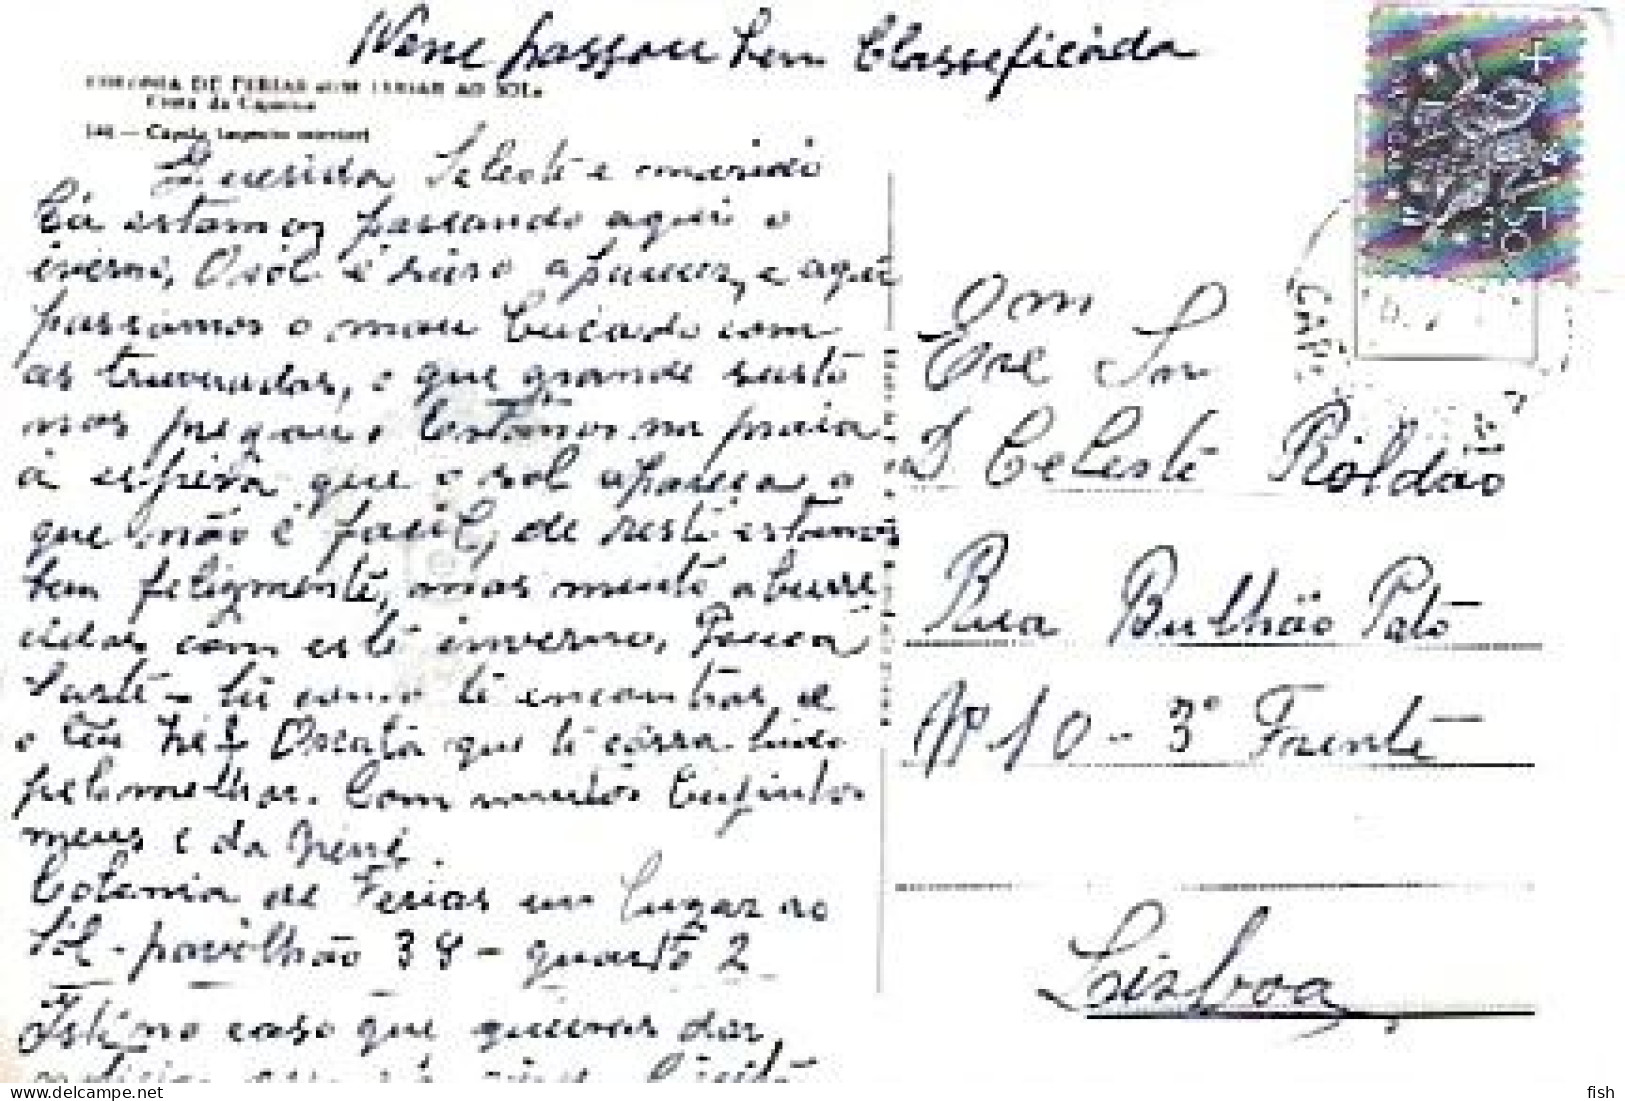 Nene passou bem Classeficáda
COLONIA DE FERIAS «UM LUGAR AO SOL»
Costa da Caparica
Capela (aspecto exterior)
Querida Seleste e marido
Cá estamos passando aqui o
inverno, O sol é raro aparecer, e aqui
passamos o mau bucado com
as truvuadas, o que grande susto
nos pregou. Estamos na praia
á espera que o sol apareça, o
que não é facil, de resto estamos
bem felizmente, mas muito aburre
cidas com este inverno,
tu como te encontras e
o teu que te corra tudo
pelo melhor. Com muitos
meus e da Nené.
Colonia de Ferias um lugar ao
Sol - pavilhão 34 - quarto 2
Isto no caso que queiras dar
Exm
Sr
D. Celeste Roldão
Rua Bulhão Pato
Nº 10 - 3º Frente
Lisboa
fish